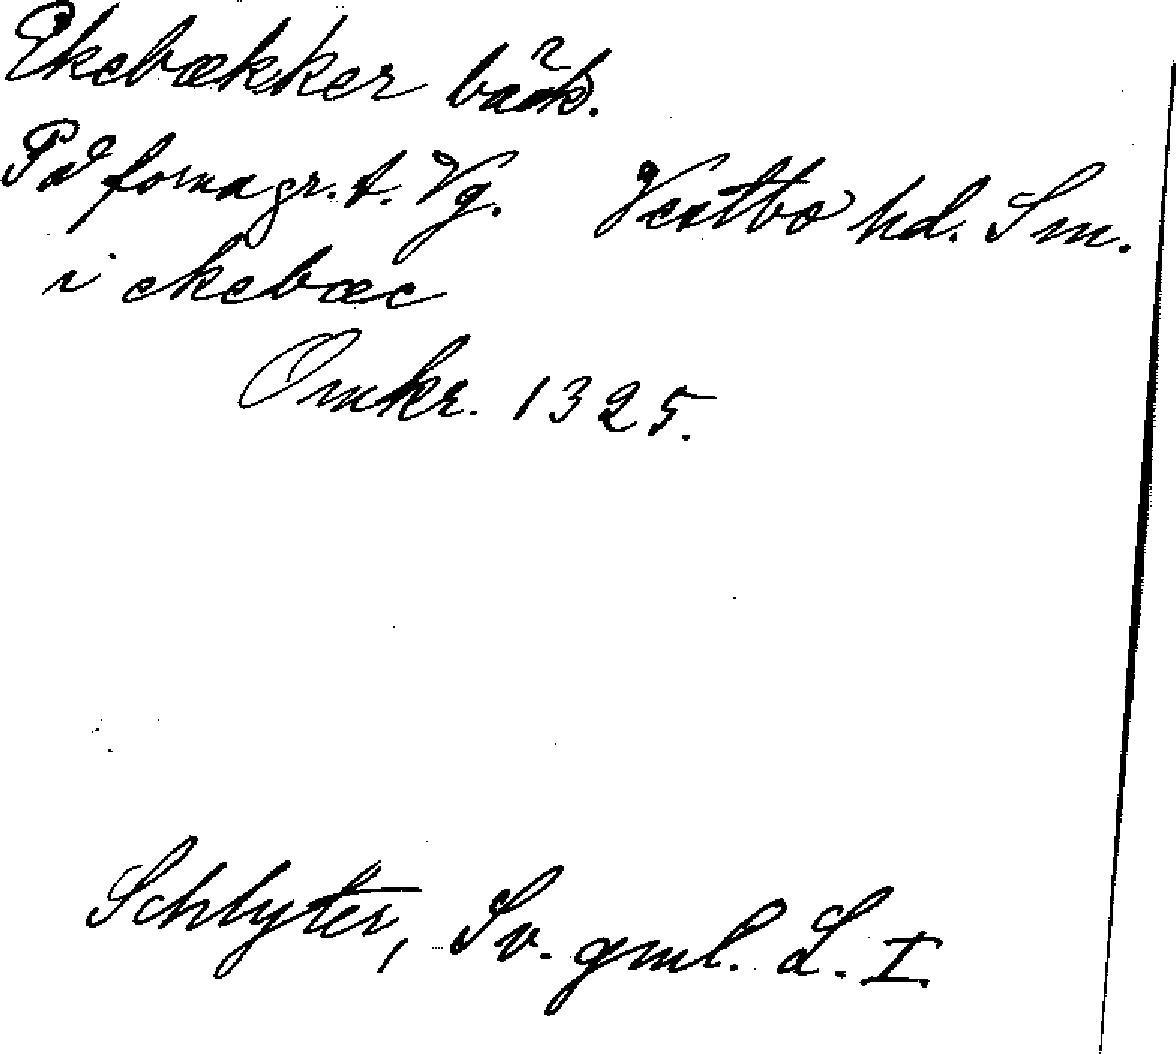 Ekebækker bäck.
På forna gr. t. Vg. Vestbo hd. Sm.
i ekebæc
Omkr. 1325.
Schlyter, Sv. gml. L. I.